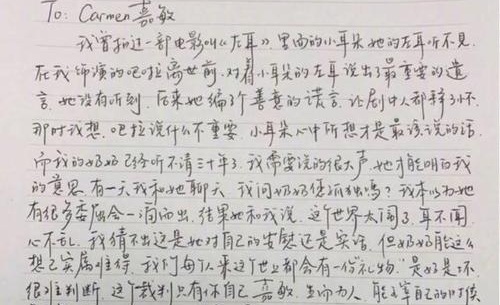 To: Carmen 嘉敏
我曾拍过一部电影叫《左耳》里面的小耳朵她的左耳听不见
在我饰演的吧啦离世前,对着小耳朵的左耳说出了最重要的遗
言,她没有听到,后来她编了个善意的谎言,让剧中人都释了怀.
那时我想,吧啦说什么不重要 小耳朵心中所想才是最该说的话
而我的奶奶已经听不清三十年了.我需要说的很大声,她才能明白我
的意思 有一天我和她聊天 我问奶奶您孤独吗?我本以为她
有很多委屈会一涌而出,结果她和我说,这个世界太闹了,耳不闻
心不乱,我猜不出这是她对自己的安慰还是实话,但奶奶能这么
想已实属难得,我们每个人来这个世上都会有一份礼物,"是好是坏"
很难判断,这个裁判只有你自己 嘉敏,生而为人,能